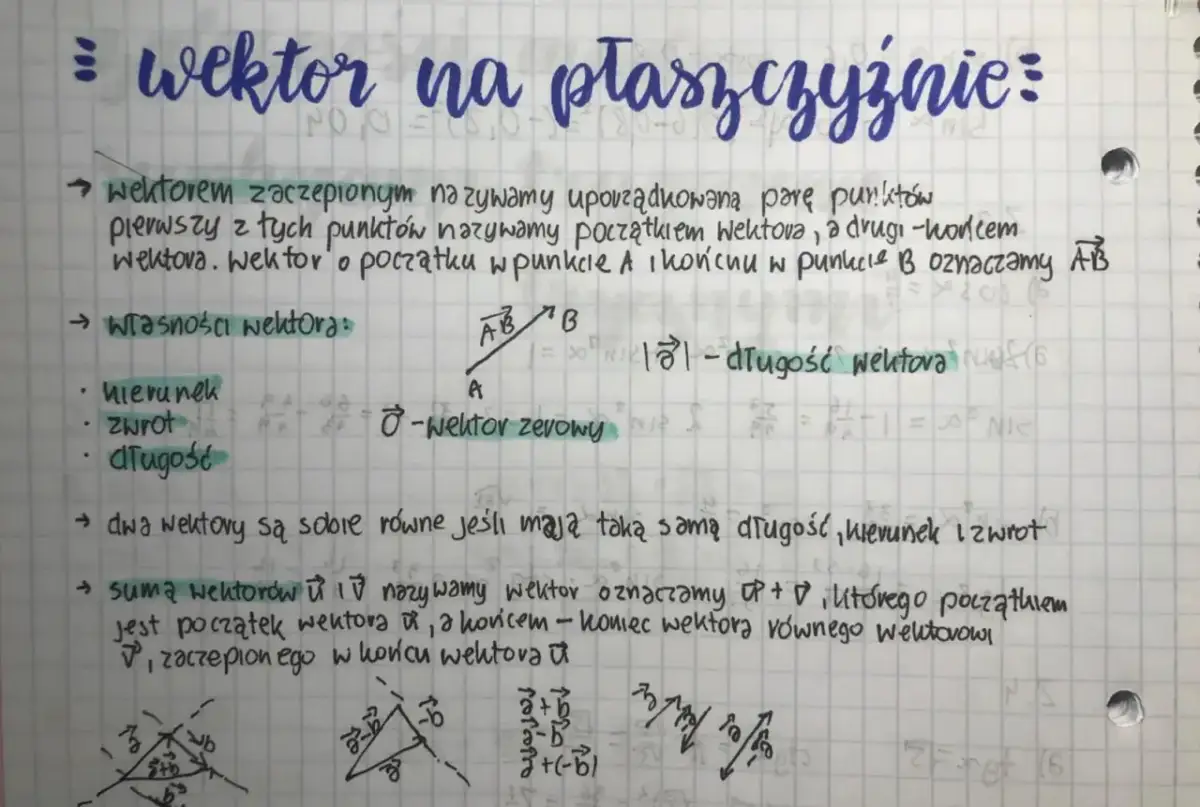 wektor na płaszczyźnie
→ wektorem zaczepionym nazywamy uporządkowaną parę punktów
pierwszy z tych punktów nazywamy początkiem wektora, a drugi - końcem
wektora. wektor o początku w punkcie A i końcu w punkcie B oznaczamy A⃗B⃗
→ własności wektora:
AB⃗
B
A
|a⃗| - długość wektora
· kierunek
· zwrot
· długość
0⃗ - wektor zerowy
→ dwa wektory są sobie równe jeśli mają taką samą długość, kierunek i zwrot
→ sumą wektorów u⃗ i v⃗ nazywamy wektor oznaczamy u⃗ + v⃗, którego początkiem
jest początek wektora u⃗, a końcem - koniec wektora równego wektorowi
v⃗, zaczepionego w końcu wektora u⃗
a⃗
b⃗
a⃗+b⃗
a⃗-b⃗
-b⃗
a⃗
a⃗+b⃗
a⃗-b⃗
a⃗+(-b⃗)